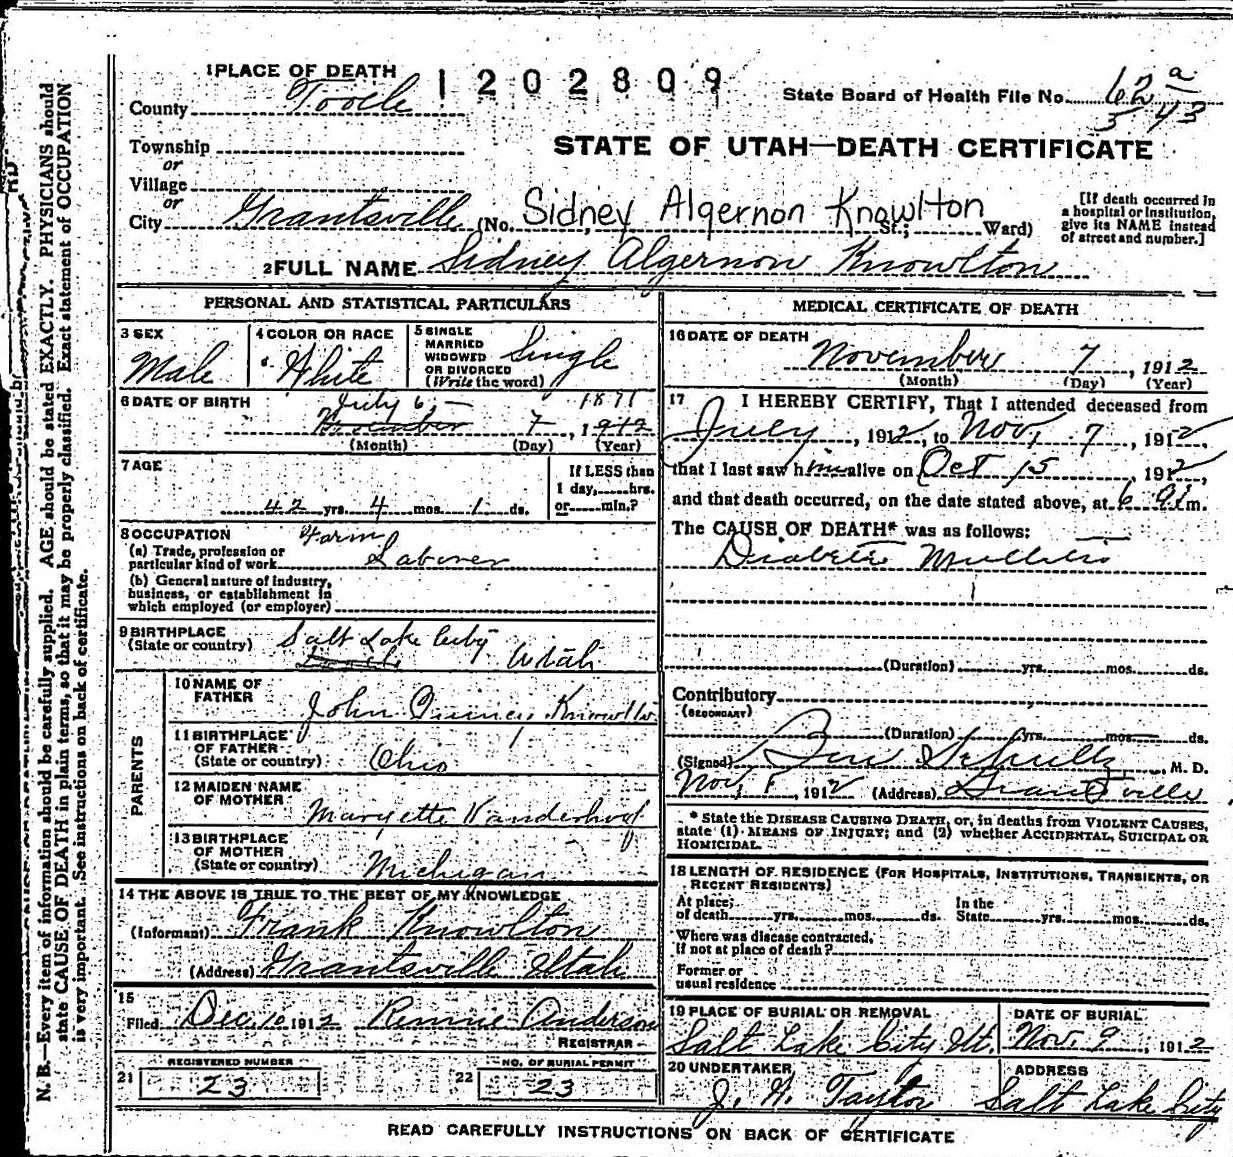 1 PLACE OF DEATH
1202809
County Tooele
State Board of Health File No. 62 a
3 43
Township
or
Village
or
City Grantsville (No. St.; Ward)
Sidney Algernon Knowlton
STATE OF UTAH—DEATH CERTIFICATE
[If death occurred in
a hospital or institution,
give its NAME instead
of street and number.]
2 FULL NAME Sidney Algernon Knowlton
PERSONAL AND STATISTICAL PARTICULARS
3 SEX
Male
4 COLOR OR RACE
White
5 SINGLE
MARRIED
WIDOWED
OR DIVORCED
(Write the word)
Single
6 DATE OF BIRTH
July 6 – 1871
November 7, 1912
(Month) (Day) (Year)
7 AGE
42 yrs. 4 mos. 1 ds.
If LESS than
1 day, hrs.
or min.?
8 OCCUPATION
(a) Trade, profession or
particular kind of work
Farm
Laborer
(b) General nature of industry,
business, or establishment in
which employed (or employer)
9 BIRTHPLACE
(State or country)
Salt Lake City
Utah
PARENTS
10 NAME OF
FATHER
John Quincy Knowlton
11 BIRTHPLACE
OF FATHER
(State or country)
Ohio
12 MAIDEN NAME
OF MOTHER
Maryette Vanderhoof
13 BIRTHPLACE
OF MOTHER
(State or country)
Michigan
14 THE ABOVE IS TRUE TO THE BEST OF MY KNOWLEDGE
(Informant) Frank Knowlton
(Address) Grantsville Utah
15
Filed Dec 10 1912 Rennie Anderson
REGISTRAR
REGISTERED NUMBER
21 23
NO. OF BURIAL PERMIT
22 23
MEDICAL CERTIFICATE OF DEATH
16 DATE OF DEATH
November 7, 1912
(Month) (Day) (Year)
17 I HEREBY CERTIFY, That I attended deceased from
July, 1912, to Nov, 7, 1912,
that I last saw him alive on Oct 15 1912,
and that death occurred, on the date stated above, at 6 m.
The CAUSE OF DEATH* was as follows:
Diabetes Mellitis
(Duration) yrs. mos. ds.
Contributory
(SECONDARY)
(Duration) yrs. mos. ds.
(Signed) M. D.
Nov, 8, 1912 (Address) Grantsville
* State the DISEASE CAUSING DEATH, or, in deaths from VIOLENT CAUSES,
state (1) MEANS OF INJURY; and (2) whether ACCIDENTAL, SUICIDAL OR
HOMICIDAL.
18 LENGTH OF RESIDENCE (FOR HOSPITALS, INSTITUTIONS, TRANSIENTS, OR
RECENT RESIDENTS)
At place
of death yrs. mos. ds.
In the
State yrs. mos. ds.
Where was disease contracted,
if not at place of death?
Former or
usual residence
19 PLACE OF BURIAL OR REMOVAL
Salt Lake City Ut.
DATE OF BURIAL
Nov. 9, 1912
20 UNDERTAKER
J. H. Taylor
ADDRESS
Salt Lake City
READ CAREFULLY INSTRUCTIONS ON BACK OF CERTIFICATE
N. B.—Every item of information should be carefully supplied. AGE should be stated EXACTLY. PHYSICIANS should
state CAUSE OF DEATH in plain terms, so that it may be properly classified. Exact statement of OCCUPATION
is very important. See instructions on back of certificate.